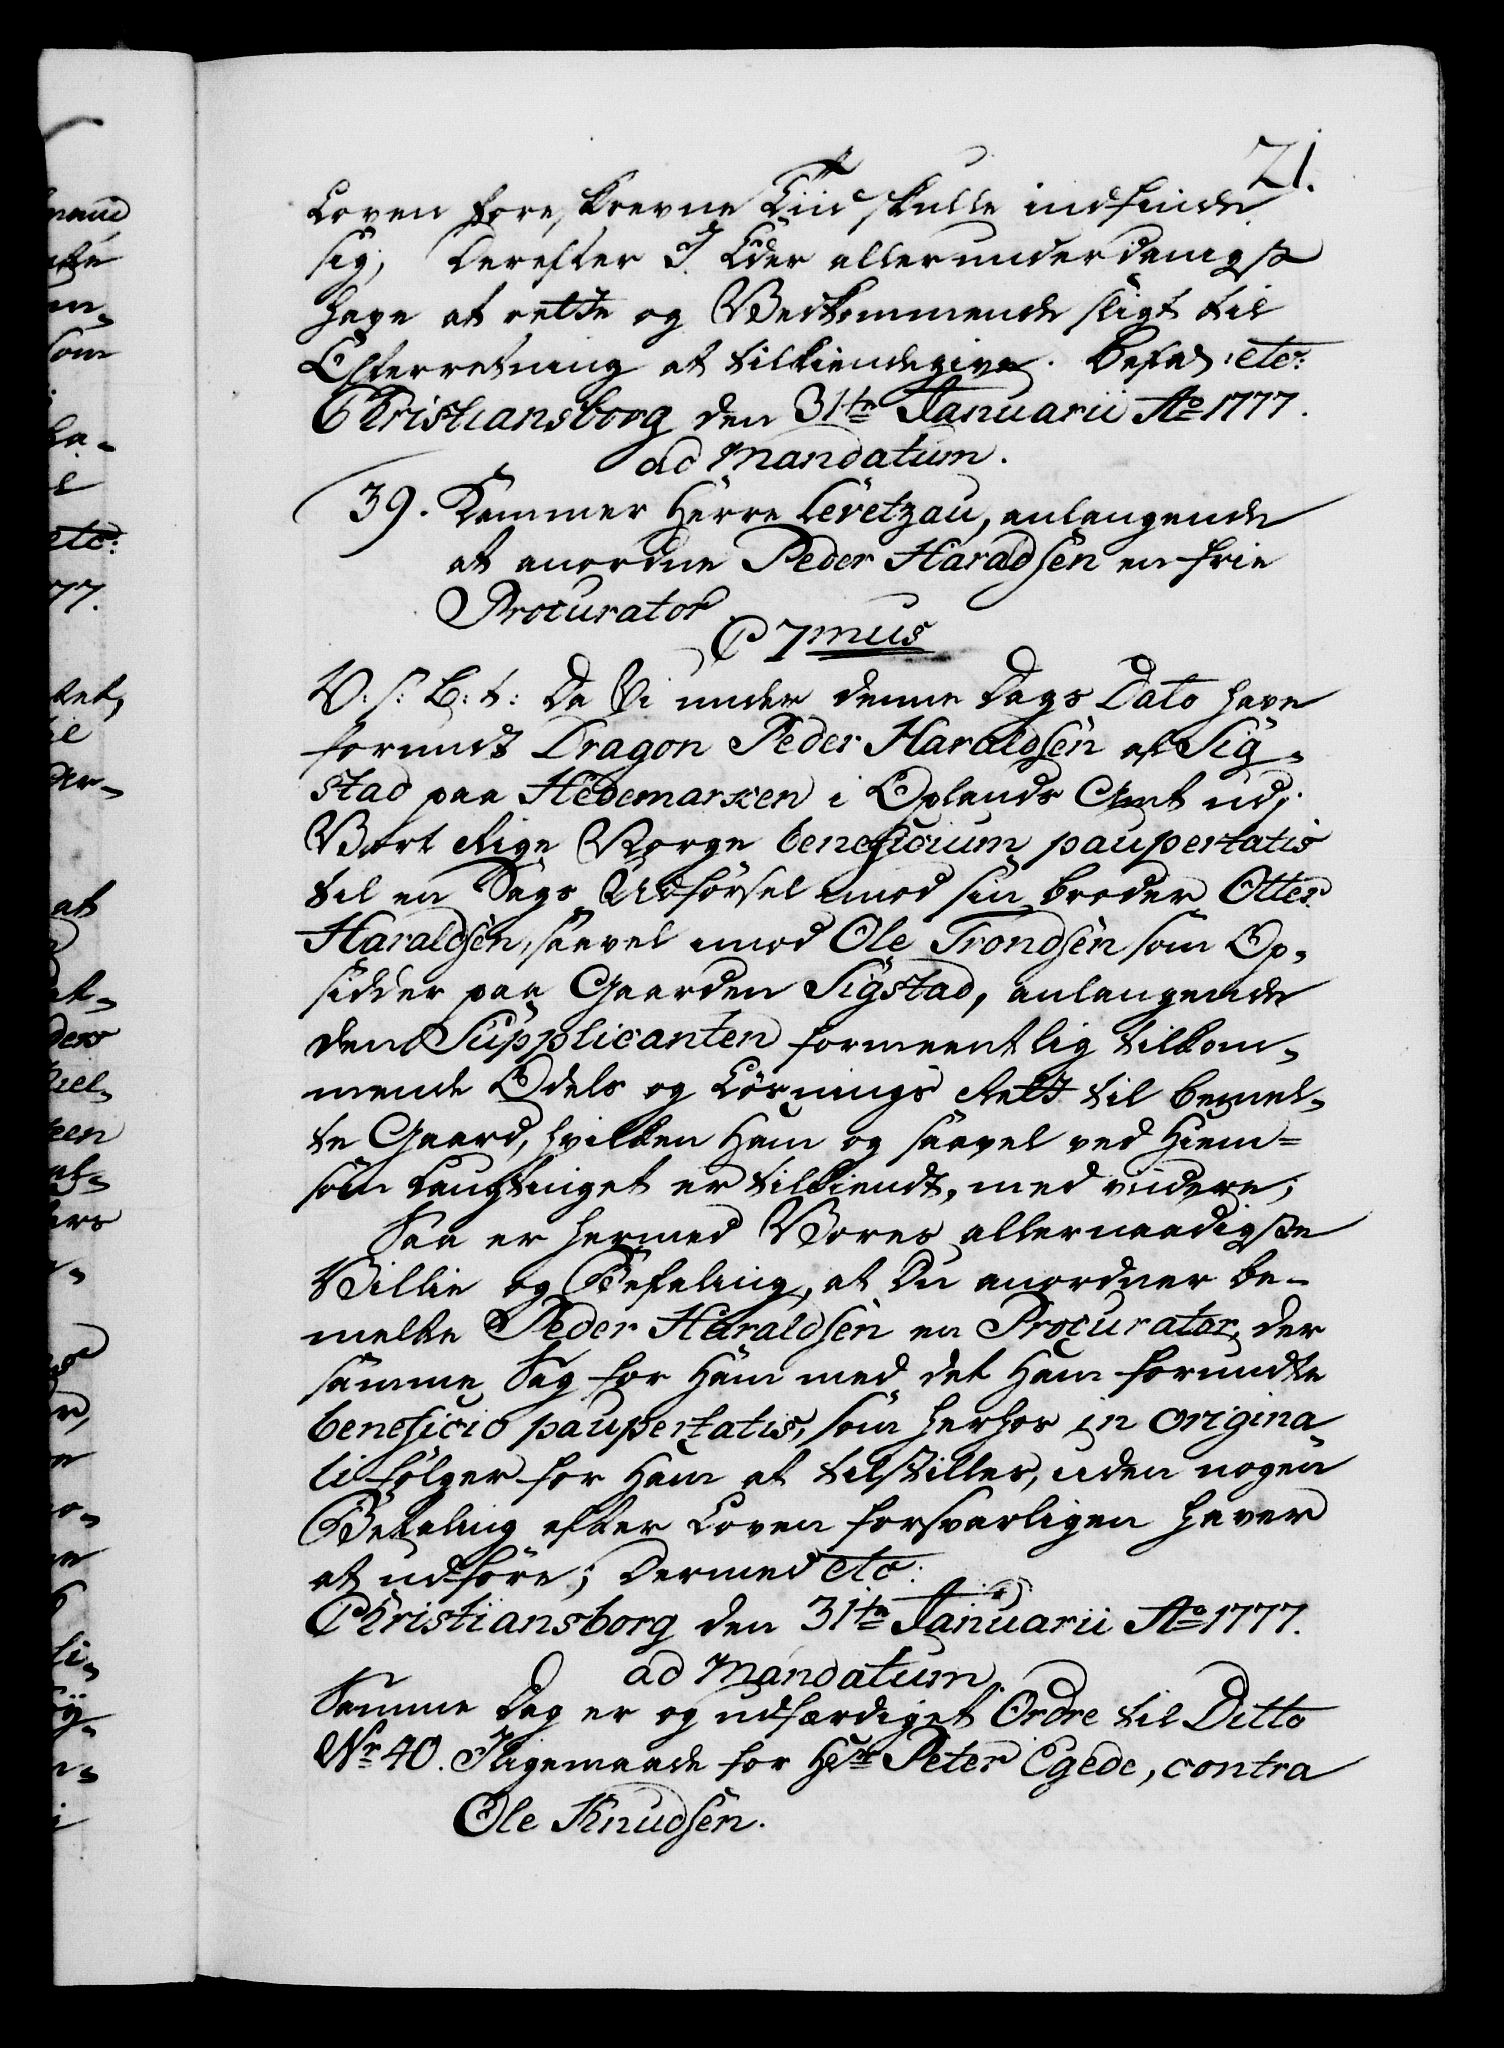 21.
Loven foreskrevne Tiid skulle indfinde
sig; Derefter I Eder allerunderdanigst
have at rette og Vedkommende sligt til
Efterretning at tilkiendegive. Befal: etc:
Christiansborg den 31te Januarii Ao 1777.
ad Mandatum.
39. Kammer Herre Levetzau, anlangende
at anordne Peder Haradsen en frie
Procurator
C 7mus
V: s: B: t: Da Vi under denne Dags Dato have
forundt Dragon Peder Haraldsen af Sig-
stad paa Hedemarken i Oplands Amt udj
Vort Rige Norge beneficium paupertatis
til en Sags Udførsel imod sin broder Otter
Haraldsen, saavel imod Ole Trondsen som Op-
sidder paa Gaarden Sigstad, anlangende
den Supplicanten formeentlig tilkom-
mende Odels og Løsnings Rett til bemel-
te Gaard, hvilken Ham og saavel ved Hiem-
som Laugtinget er tilkiendt, med videre;
Saa er hermed Vores allernaadigste
Villie og Befaling, at Du anordner be-
melte Peder Haraldsen en Procurator, der
samme Sag for Ham med det Ham forundte
beneficio paupertatis, som herhos in origina-
li følger for Ham at tilstilles, uden nogen
Betaling efter Loven forsvarligen haver
at udføre; Dermed etc:
Christiansborg den 31te Januarii Ao 1777.
ad Mandatum.
Samme Dag er og udfærdiget Ordre til Ditto
Nr 40. Ligemaade for Hr Peter Egede, contra
Ole Knudsen.